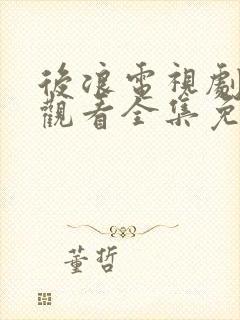 後浪電視劇
觀看全集免
董哲